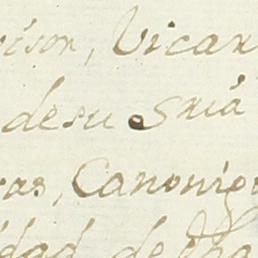 visor, Vicar
de su Sriâ
ras, Canonig
idad de